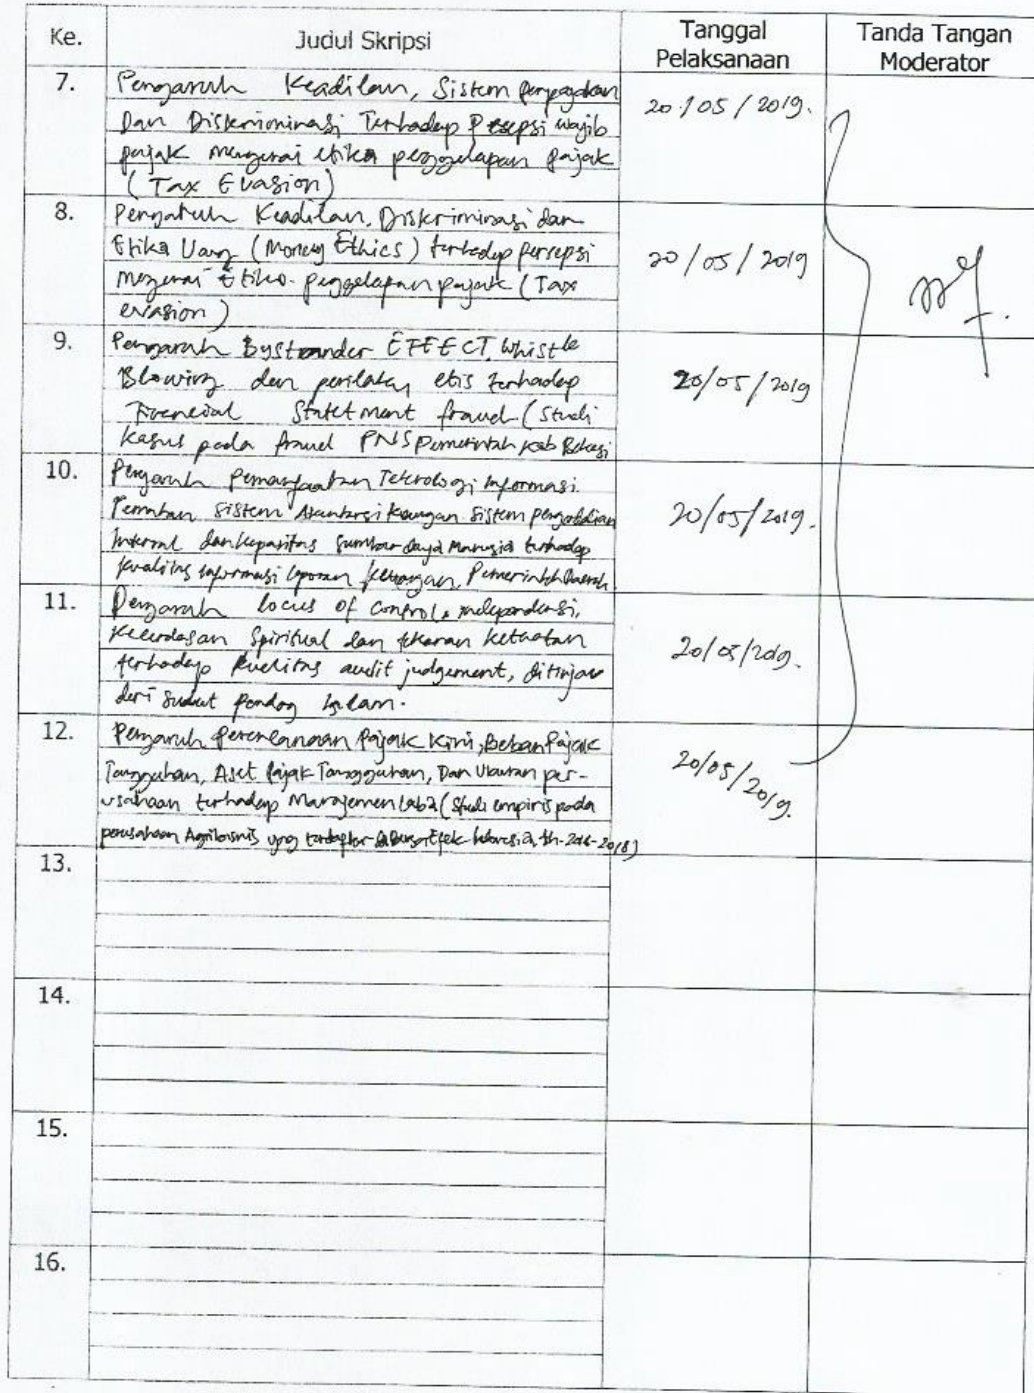 Ke. Judul Skripsi Tanggal Pelaksanaan Tanda Tangan Moderator
7. Pengaruh Keadilan, Sistem perpajakan
Dan Diskriminasi Terhadap Presepsi wajib
pajak mengenai etika penggelapan pajak
(Tax Evasion)
20/05/2019.
8. Pengaruh Keadilan, Diskriminasi dan
Etika Uang (Money Ethics) terhadap persepsi
mengenai Etika penggelapan pajak (Tax
evasion)
20/05/2019
9. Pengaruh Bystander EFFECT, Whistle
Blowing dan perilaku etis terhadap
Financial Statetment fraud (Studi
kasus pada PNS Pemerintah kab Bekasi
20/05/2019
10. Pengaruh Pemanfaatan Teknologi Informasi.
Sistem Akuntansi Keuangan Sistem pengendalian
Internal dan kapasitas Sumber daya Manusia terhadap
kualitas informasi laporan keuangan, Pemerintah Daerah
20/05/2019.
11. Pengaruh locus of control, independensi,
Kecerdasan Spiritual dan tekanan ketaatan
terhadap kualitas audit judgement, ditinjau
dari Sudut Pandang Islam.
20/05/2019.
12. Pengaruh perencanaan Pajak Kini, Beban Pajak
Tangguhan, Aset Pajak Tangguhan, Dan Ukuran per-
usahaan terhadap Manajemen laba (Studi empiris pada
perusahaan Agribisnis yang terdaftar di Bursa Efek Indonesia, th. 2016-2018)
20/05/2019.
13.
14.
15.
16.